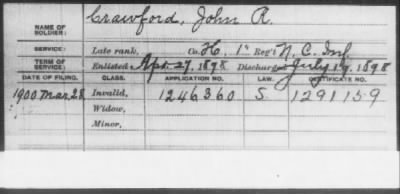 NAME OF SOLDIER: Crawford, John R.
SERVICE: Late rank, Co. H, 1" Reg't N. C. Inf
TERM OF SERVICE: Enlisted Apr. 27, 1898 Discharged July 19, 1898
DATE OF FILING. CLASS. APPLICATION NO. LAW. CERTIFICATE NO.
1900 Mar 28 Invalid, 1246360 S. 1291159
Widow,
Minor,